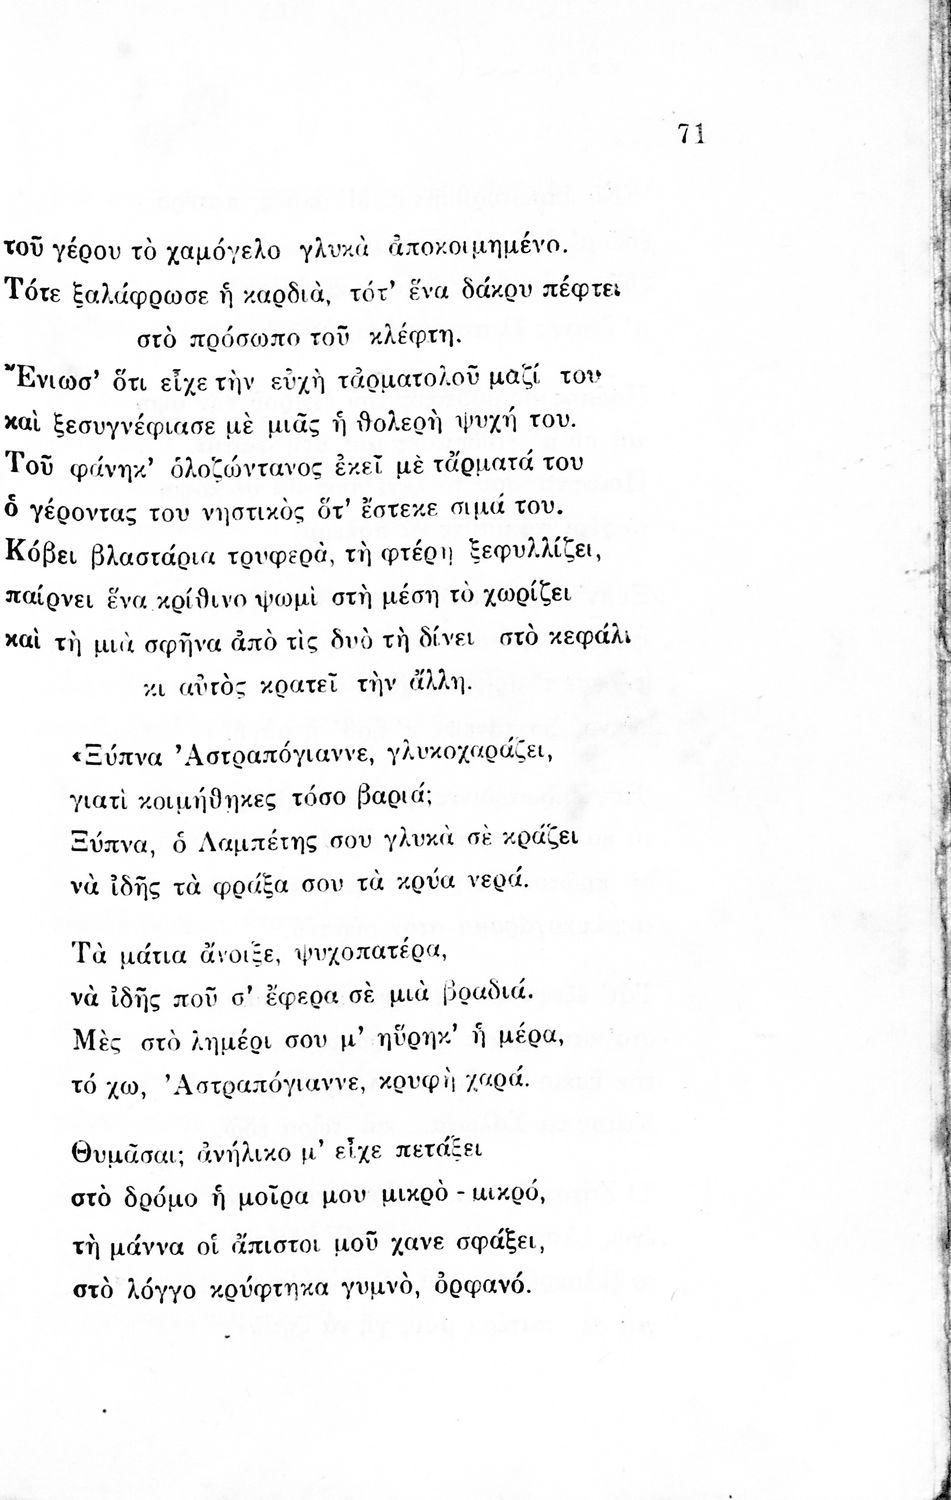 71
τοῦ γέρου τὸ χαμόγελο γλυκὰ ἀποκοιμημένο.
Τότε ξαλάφρωσε ἡ καρδιὰ, τότ’ ἕνα δάκρυ πέφτει
στὸ πρόσωπο τοῦ κλέφτη.
Ἔνιωσ’ ὅτι εἶχε τὴν εὐχὴ τἀρματολοῦ μαζί του
καὶ ξεσυγνέφιασε μὲ μιᾶς ἡ θολερὴ ψυχή του.
Τοῦ φάνηκ’ ὁλοζώντανος ἐκεῖ μὲ τἄρματά του
ὁ γέροντας του νηστικὸς ὅτ’ ἔστεκε σιμά του.
Κόβει βλαστάρια τρυφερὰ, τὴ φτέρη ξεφυλλίζει,
παίρνει ἕνα κρίθινο ψωμὶ στὴ μέση τὸ χωρίζει
καὶ τὴ μιὰ σφῆνα ἀπὸ τὶς δυὸ τὴ δίνει στὸ κεφάλι
κι αὐτὸς κρατεῖ τὴν ἄλλη.
«Ξύπνα Ἀστραπόγιαννε, γλυκοχαράζει,
γιατὶ κοιμήθηκες τόσο βαριά;
Ξύπνα, ὁ Λαμπέτης σου γλυκὰ σὲ κράζει
νὰ ἰδῆς τὰ φράξα σου τὰ κρύα νερά.
Τὰ μάτια ἄνοιξε, ψυχοπατέρα,
νὰ ἰδῆς ποῦ σ’ ἔφερα σὲ μιὰ βραδιά.
Μὲς στὸ λημέρι σου μ’ ηὕρηκ’ ἡ μέρα,
τό χω, Ἀστραπόγιαννε, κρυφὴ χαρά.
Θυμᾶσαι; ἀνήλικο μ’ εἶχε πετάξει
στὸ δρόμο ἡ μοῖρα μου μικρὸ - μικρό,
τὴ μάννα οἱ ἄπιστοι μοῦ χανε σφάξει,
στὸ λόγγο κρύφτηκα γυμνὸ, ὀρφανό.